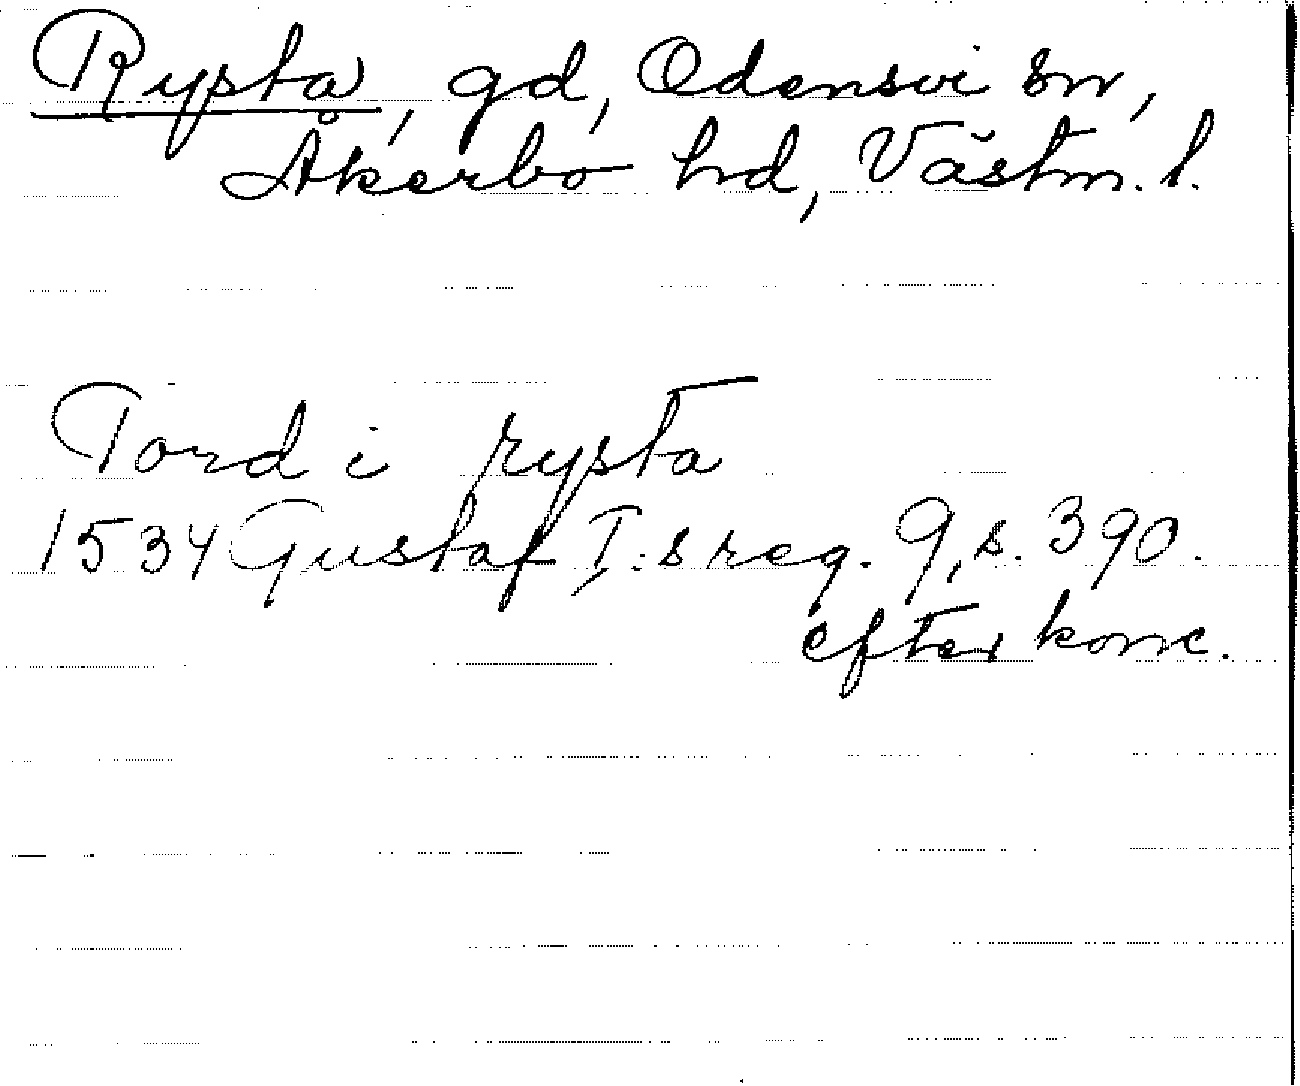 Rysta, gd, Odensvi sn,
Åkerbo hd, Västm. l.
Tord i rysta
1534 Gustaf I:s reg. 9, s. 390.
efter konc.